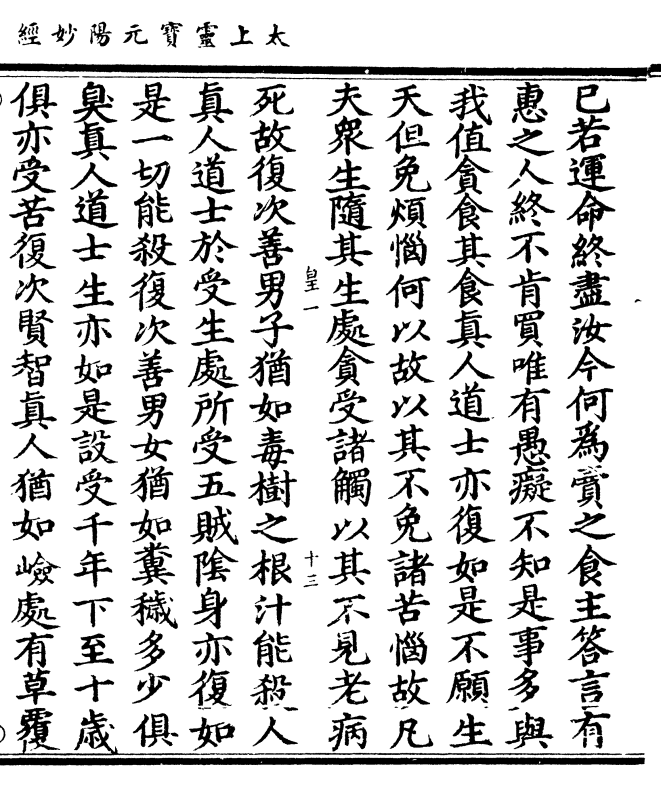 太上靈寶元陽妙經
已若運命終盡汝今何爲賣之食主答言有
惠之人終不肯買唯有愚癡不知是事多與
我值貪食其食眞人道士亦復如是不願生
天但免煩惱何以故以其不免諸苦惱故凡
夫衆生隨其生處貪受諸觸以其不見老病
皇一
十三
死故復次善男子猶如毒樹之根汁能殺人
眞人道士於受生處所受五賊陰身亦復如
是一切能殺復次善男女猶如糞穢多少俱
臭眞人道士生亦如是設受千年下至十歲
俱亦受苦復次賢智眞人猶如嶮處有草覆